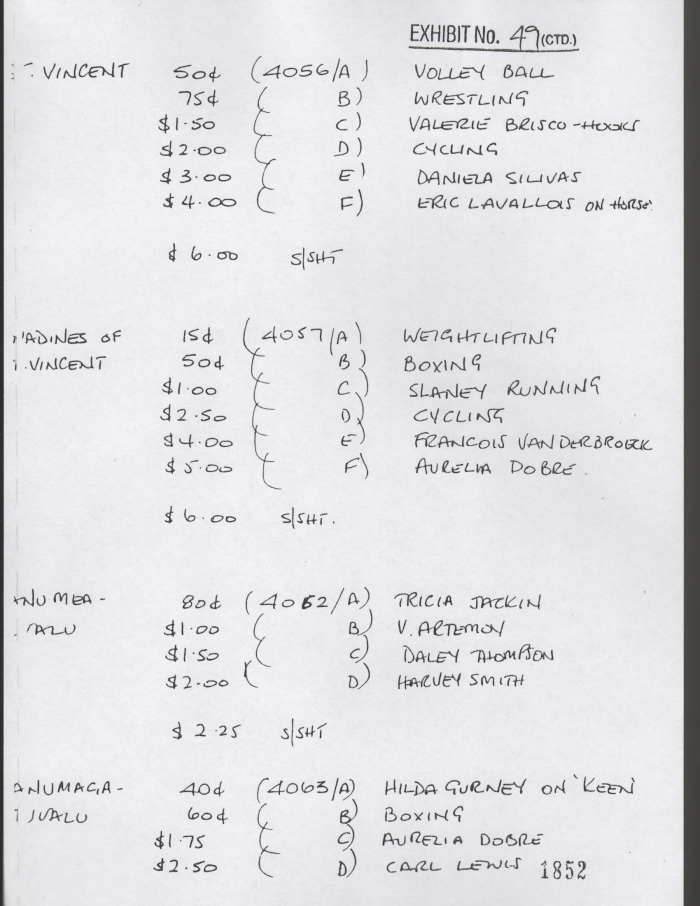 EXHIBIT No. 49 (CTD.)
T. VINCENT 50¢ (4056/A) VOLLEY BALL
75¢ ( B) WRESTLING
$1.50 ( C) VALERIE BRISCO-HOOKS
$2.00 ( D) CYCLING
$3.00 ( E) DANIELA SILIVAS
$4.00 ( F) ERIC LAVALLOIS ON HORSE
$6.00 S/SHT
NADINES OF 15¢ (4057/A) WEIGHTLIFTING
T. VINCENT 50¢ ( B) BOXING
$1.00 ( C) SLANEY RUNNING
$2.50 ( D) CYCLING
$4.00 ( E) FRANCOIS VANDERBROECK
$5.00 ( F) AURELIA DOBRE.
$6.00 S/SHT.
ANUMEA- 80¢ (4062/A) TRICIA JACKIN
VALU $1.00 ( B) V. ARTEMOV
$1.50 ( C) DALEY THOMPSON
$2.00 ( D) HARVEY SMITH
$2.25 S/SHT
ANUMAGA- 40¢ (4063/A) HILDA GURNEY ON 'KEEN'
TUVALU 60¢ ( B) BOXING
$1.75 ( C) AURELIA DOBRE
$2.50 ( D) CARL LEWIS 1852